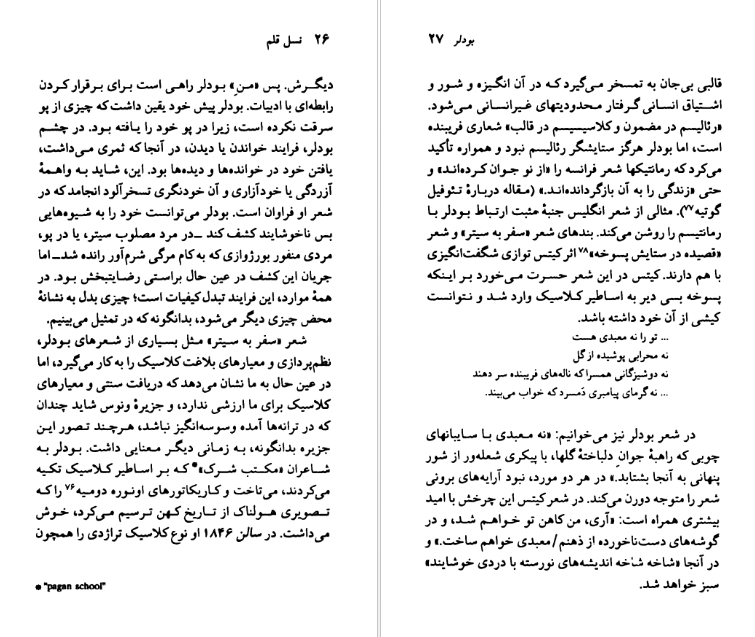 ۲۶ نسل قلم
دیگرش. پس «من» بودلر راهی است برای برقرار کردن
رابطه‌ای با ادبیات. بودلر پیش خود یقین داشت که چیزی از پو
سرقت نکرده است، زیرا در پو خود را یافته بود. در چشم
بودلر، فرایند خواندن یا دیدن، در آنجا که ثمری می‌داشت،
یافتن خود در خوانده‌ها و دیده‌ها بود. این، شاید به واهمهٔ
آزردگی یا خودآزاری و آن خودنگری تسخرآلود انجامد که در
شعر او فراوان است. بودلر می‌توانست خود را به شیوه‌هایی
بس ناخوشایند کشف کند ـ در مرد مصلوب سیتر، یا در پو،
مردی منفور بورژوازی که به کام مرگی شرم‌آور رانده شد ـ اما
جریان این کشف در عین حال براستی رضایتبخش بود. در
همهٔ موارد، این فرایند تبدل کیفیات است؛ چیزی بدل به نشانهٔ
محض چیزی دیگر می‌شود، بدانگونه که در تمثیل می‌بینیم.
شعر «سفر به سیتر» مثل بسیاری از شعرهای بودلر،
نظم‌پردازی و معیارهای بلاغت کلاسیک را به کار می‌گیرد، اما
در عین حال به ما نشان می‌دهد که دریافت سنتی و معیارهای
کلاسیک برای ما ارزشی ندارد، و جزیرهٔ ونوس شاید چندان
که در ترانه‌ها آمده وسوسه‌انگیز نباشد، هرچند تصور این
جزیره بدانگونه، به زمانی دیگر معنایی داشت. بودلر به
شاعران «مکتب شرک»* که بر اساطیر کلاسیک تکیه
می‌کردند، می‌تاخت و کاریکاتورهای اونوره دومیه۷۶ را که
تصویری هولناک از تاریخ کهن ترسیم می‌کرد، خوش
می‌داشت. در سالن ۱۸۴۶ او نوع کلاسیک تراژدی را همچون
* "pagan school"
بودلر ۲۷
قالبی بی‌جان به تمسخر می‌گیرد که در آن انگیزه و شور و
اشتیاق انسانی گرفتار محدودیتهای غیرانسانی می‌شود.
«رئالیسم در مضمون و کلاسیسیسم در قالب» شعاری فریبنده
است، اما بودلر هرگز ستایشگر رئالیسم نبود و همواره تأکید
می‌کرد که رمانتیکها شعر فرانسه را «از نو جوان کرده‌اند» و
حتی «زندگی را به آن بازگردانده‌اند.» (مقاله دربارهٔ تئوفیل
گوتیه۷۷). مثالی از شعر انگلیس جنبهٔ مثبت ارتباط بودلر با
رمانتیسم را روشن می‌کند. بندهای شعر «سفر به سیتر» و شعر
«قصیده در ستایش پسوخه»۷۸ اثر کیتس توازی شگفت‌انگیزی
با هم دارند. کیتس در این شعر حسرت می‌خورد بر اینکه
پسوخه بسی دیر به اساطیر کلاسیک وارد شد و نتوانست
کیشی از آن خود داشته باشد.
... تو را نه معبدی هست
نه محرابی پوشیده از گل
نه دوشیزگانی همسرا که ناله‌های فریبنده سر دهند
... نه گرمای پیامبری دَمسرد که خواب می‌بیند.
در شعر بودلر نیز می‌خوانیم: «نه معبدی با سایبانهای
چوبی که راهبهٔ جوانِ دلباختهٔ گلها، با پیکری شعله‌ور از شور
پنهانی به آنجا بشتابد.» در هر دو مورد، نبود آرایه‌های برونی
شعر را متوجه دورن می‌کند. در شعر کیتس این چرخش با امید
بیشتری همراه است: «آری، من کاهن تو خواهم شد، و در
گوشه‌های دست‌ناخورده از ذهنم/معبدی خواهم ساخت.» و
در آنجا «شاخه شاخه اندیشه‌های نورسته با دردی خوشایند»
سبز خواهد شد.